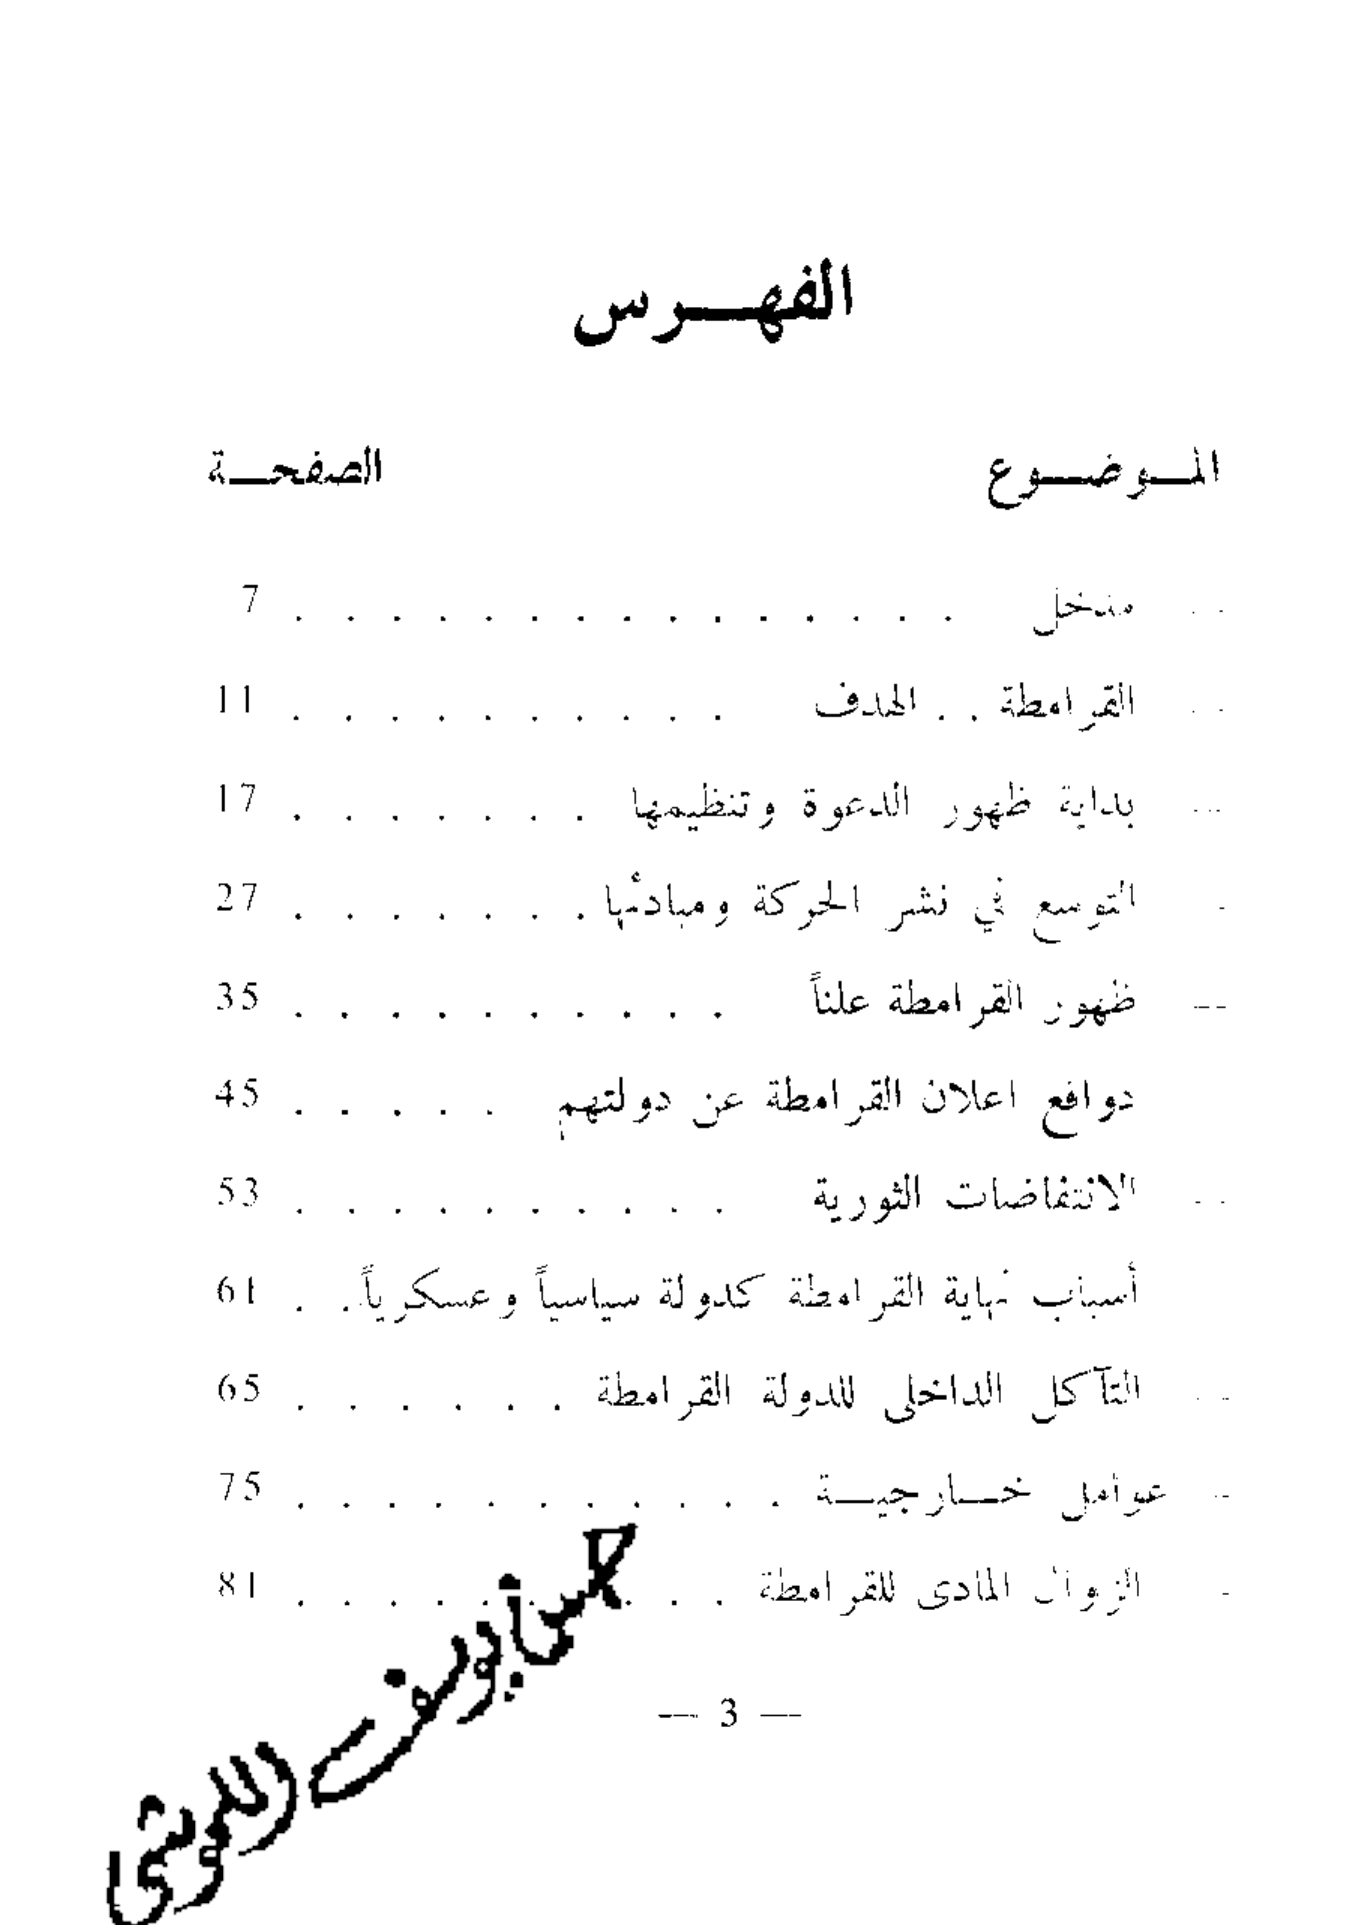 الفهرس
الموضوع الصفحة
— مدخل . . . . . . . . . . . . . . . 7
— القرامطة . . الهدف . . . . . . . . . . 11
— بداية ظهور الدعوة وتنظيمها . . . . . . . 17
— التوسع في نشر الحركة ومبادئها . . . . . . . 27
— ظهور القرامطة علناً . . . . . . . . . . 35
دوافع اعلان القرامطة عن دولتهم . . . . . 45
— الانتفاضات الثورية . . . . . . . . . . 53
أسباب نهاية القرامطة كدولة سياسياً وعسكرياً . . 61
— التآكل الداخلى للدولة القرامطة . . . . . . 65
— عوامل خارجية . . . . . . . . . . . 75
— الزوال المادى للقرامطة . . . . . . . . . . 81
— 3 —
يوسف